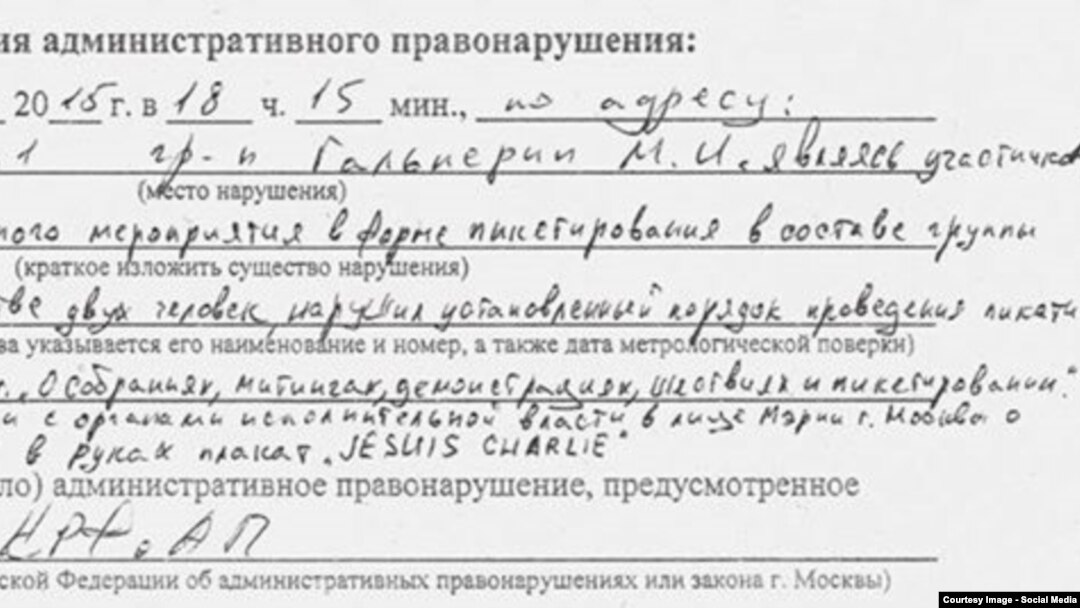 ия административного правонарушения:
2015 г. в 18 ч. 15 мин., по адресу:
1 гр-н Гальперин М. И. являясь участнико
(место нарушения)
ного мероприятия в форме пикетирования в составе группы
(краткое изложить существо нарушения)
тве двух человек, нарушил установленный порядок проведения пикети
ва указывается его наименование и номер, а также дата метрологической поверки)
„О Собраниях, митингах, демонстрациях, шествиях и пикетировании."
и с органами исполнительной власти в лице Мэрии г. Москва о
в руках плакат „JESUIS CHARLIE"
ло) административное правонарушение, предусмотренное
КРФ. АП
ской Федерации об административных правонарушениях или закона г. Москвы)
Courtesy Image - Social Media